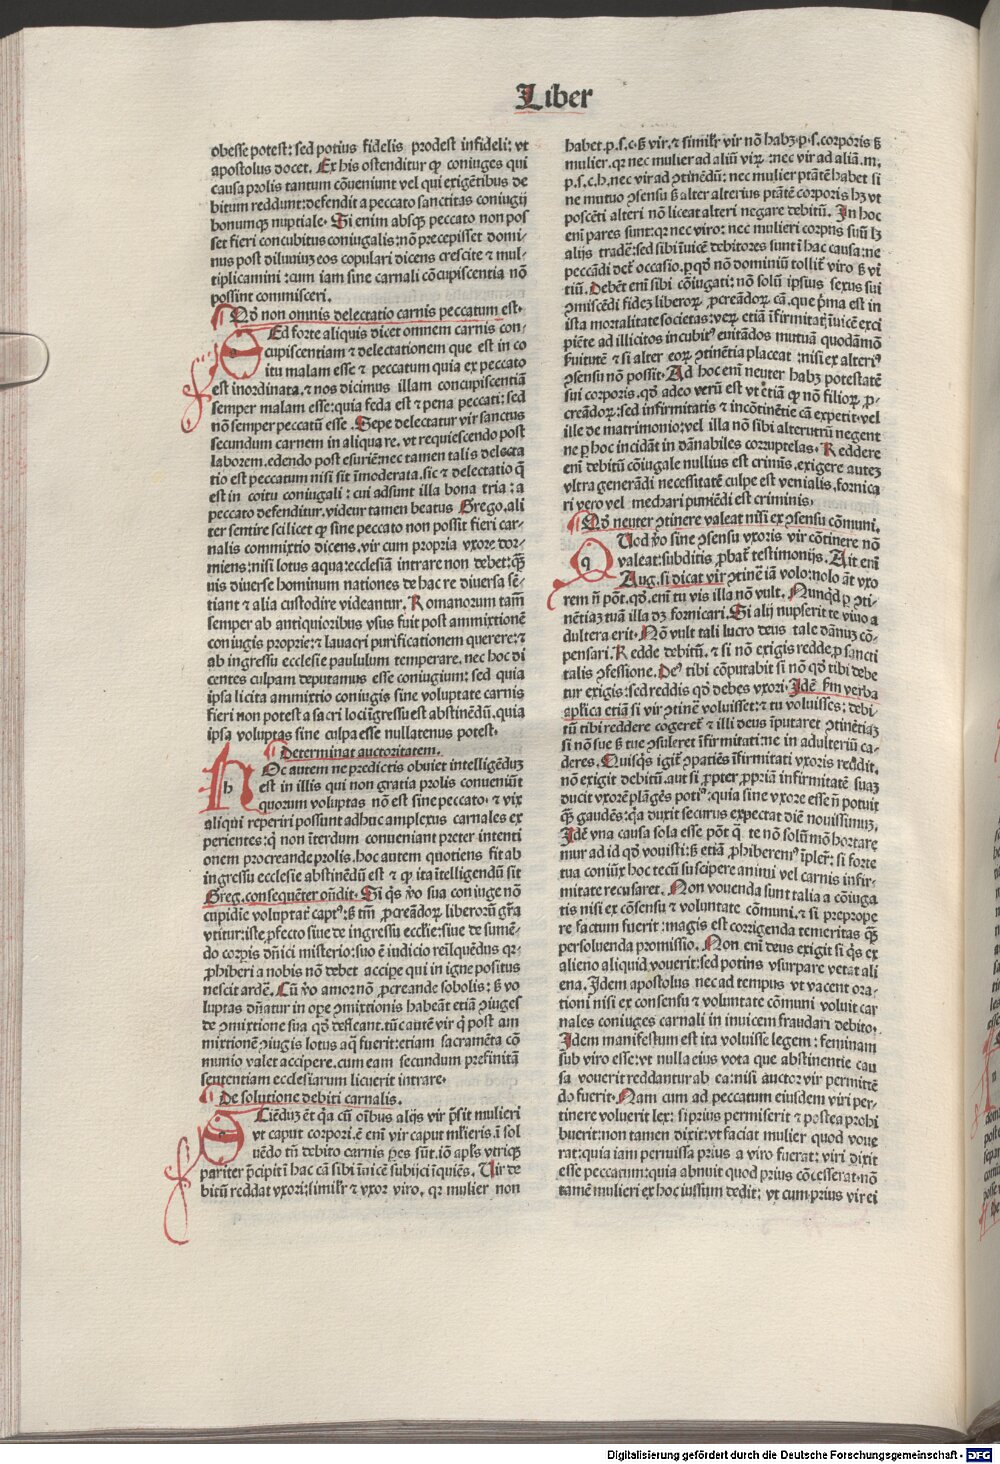 Liber
obesse potest: sed potius fidelis prodest infideli: vt
apostolus docet. Ex his ostenditur ꝙ coniuges qui
causa prolis tantum cōueniunt vel qui exigētibus de
bitum reddunt: defendit a peccato sanctitas coniugij
bonumqꝫ nuptiale. Si enim absqꝫ peccato non pos
set fieri concubitus coniugalis: nō precepisset domi-
nus post diluuiuꝫ eos copulari dicens crescite ⁊ mul-
tiplicamini: cum iam sine carnali cōcupiscentia nō
possint commisceri.
¶ Qd̄ non omnis delectatio carnis peccatum est.
Sed forte aliquis dicet omnem carnis con-
cupiscentiam ⁊ delectationem que est in co
itu malam esse ⁊ peccatum quia ex peccato
est inordinata. ⁊ nos dicimus illam concupiscentiā
semper malam esse: quia feda est ⁊ pena peccati: sed
nō semper peccatū esse. Sepe delectatur vir sanctus
secundum carnem in aliqua re. vt requiescendo post
laborem. edendo post esuriē: nec tamen talis delecta
tio est peccatum nisi sit īmoderata. sic ⁊ delectatio q̄
est in coitu coniugali: cui adsunt illa bona tria: a
peccato defenditur. videtur tamen beatus Grego. ali
ter sentire scilicet ꝙ sine peccato non possit fieri car-
nalis commixtio dicens. vir cum propria vxore dor-
miens: nisi lotus aqua: ecclesiā intrare non debet: qꝫ̄
uis diuerse hominum nationes de hac re diuersa sē-
tiant ⁊ alia custodire videantur. Romanorum tamē
semper ab antiquioribus vsus fuit post ammixtionē
coniugis proprie: ⁊ lauacri purificationem querere: ⁊
ab ingressu ecclesie paululum temperare. nec hoc di
centes culpam deputamus esse coniugium: sed quia
ipsa licita ammixtio coniugis sine voluptate carnis
fieri non potest a sacri loci īgressu est abstinēdū. quia
ipsa voluptas sine culpa esse nullatenus potest.
¶ Determinat auctoritatem.
Hoc autem ne predictis obuiet intelligēduꝫ
est in illis qui non gratia prolis conueniūt
quorum voluptas nō est sine peccato. ⁊ vix
aliqui reperiri possunt adhuc amplexus carnales ex
perientes: q̇ non īterdum conueniant preter intenti
onem procreande prolis. hoc autem quotiens fit ab
ingressu ecclesie abstinēdū est ⁊ ꝙ ita ītelligendū sit
Greg. consequēter on̄dit. Si q̇s v̄o sua coniuge nō
cupidie voluptat̄ capt⁹: sꝫ tm̄ ꝓcreādoꝝ liberorū gr̄a
vtitur: iste ꝓfecto siue de ingressu ecclie: siue de sumē-
do corꝑis dn̄ici misterio: suo ē iudicio relīquēdus qr
ꝓhiberi a nobis nō debet accipe qui in igne positus
nescit ardē. Cū v̄o amor nō ꝓcreande sobolis: sꝫ vo
luptas dn̄atur in ope ꝯmixtionis habeāt etiā ꝯiuges
de ꝯmixtione sua qd̄ defleant. tūc autē vir q̇ post am
mixtionē ꝯiugis lotus aq̄ fuerit: etiam sacramēta cō
munio valet accipere. cum eam secundum prefinitā
sententiam ecclesiarum licuerit intrare.
¶ De solutione debiti carnalis.
Sciēduꝫ ēt q̄a cū oībus alijs vir p̄sit mulieri
vt caput corpori. ē enī vir caput ml̄ieris. ī sol
uēdo tn̄ debito carnis ꝑes sūt. iō apl̄s vtriqꝫ
pariter p̄cipit ī hac cā sibi īuicē subijci ī quiēs. Vir de
bitū reddat vxori: similr̄ ⁊ vxor viro. qr mulier non
habet. p. s. c. sꝫ vir. ⁊ similr̄ vir nō habꝫ. p. s. corporis sꝫ
mulier. qr nec mulier ad aliū virū: nec vir ad aliā. m.
p. s. c. h. nec vir ad ꝯtinēdū: nec mulier ptātē habet si
ne mutuo ꝯsensu sꝫ alter alterius ptātē corporis hꝫ vt
poscēti alteri nō liceat alteri negare debitū. In hoc
enī pares sunt: qr nec viro: nec mulieri corpus suū lꝫ
alijs tradē: sed sibi īuicē debitores sunt ī hac causa: ne
peccādi det̄ occasio. p qd̄ nō dominiū tollit̄ viro sꝫ vi
tiū. Debēt enī sibi cōiugati: nō solū ipsius sexus sui
ꝯmiscēdi fideꝫ liberoꝝ ꝓcreādoꝝ cā. que p̄ma est in
ista mortalitate societas: veꝝ etiā īfirmitat̄ īuicē exci
piēte ad illicitos incubit⁹ euitādos mutuā quodāmō
ẜuitutē ⁊ si alter eoꝝ ꝯtinētia placeat: nisi ex alteri⁹
ꝯsensu nō possit. Ad hoc enī neuter habꝫ potestatē
sui corporis. qd̄ adeo verū est vt etiā ꝙ nō filioꝝ ꝓ-
creādoꝝ: sed infirmitatis ⁊ incōtinētie cā expetit. vel
ille de matrimonio: vel illa nō sibi alterutrū negent
ne p hoc incidāt in dānabiles corruptelas. Reddere
enī debitū cōiugale nullius est crimīs. exigere auteꝫ
vltra generādi necessitatē culpe est venialis. fornica
ri vero vel mechari puniēdi est criminis.
¶ Qd̄ neuter ꝯtinere valeat nisi ex ꝯsensu cōmuni.
Quod v̄o sine ꝯsensu vxoris vir cōtinere nō
valeat: subditis ꝓbat̄ testimonijs. Ait enī
Aug. si dicat vir ꝯtinē iā volo: nolo āt vxo
rem n̄ pōt. qd̄. enī tu vis illa nō vult. Nunqd̄ ꝑ ꝯti-
nētiaꝫ tuā illa dꝫ fornicari. Si alij nupserit te viuo a
dultera erit. Nō vult tali lucro deus tale dānuꝫ cō-
pensari. Redde debitū. ⁊ si nō exigis redde. ꝓ sancti
talis ꝯfessione. De⁹ tibi cōputabit si nō qd̄ tibi debe
tur exigis: sed reddis qd̄ debes vxori. Idē ẜm verba
apl̄ica etiā si vir ꝯtinē voluisset: ⁊ tu voluisses: debi-
tū tibi reddere cogeret̄ ⁊ illi deus īputaret ꝯtinētiaꝫ
si nō sue sꝫ tue ꝯsuleret īfirmitati: ne in adulteriū ca-
deres. Quisq̇s igit̄ ꝯpatiēs īfirmitati vxoris reddit.
nō exigit debitū. aut si ꝓpter ꝓpriā infirmitatē suaꝫ
ducit vxorē plāgēs poti⁹: quia sine vxore esse n̄ potuit
qꝫ̄ gaudēs: q̄a duxit securus expectat diē nouissimuꝫ.
Idē vna causa sola esse pōt q̄ te nō solū mō hortare
mur ad id qd̄ vouisti: sꝫ etiā ꝓhiberem⁹ īplēr: si forte
tua coniūx hoc tecū suscipere animi vel carnis infir-
mitate recusaret. Non vouenda sunt talia a cōiuga
tis nisi ex cōsensu ⁊ voluntate cōmuni. ⁊ si prepope
re factum fuerit: magis est corrigenda temeritas qꝫ̄
persoluenda promissio. Non enī deus exigit si q̇s ex
alieno aliquid vouerit: sed potius vsurpare vetat ali
ena. Idem apostolus nec ad tempus vt vacent ora-
tioni nisi ex consensu ⁊ voluntate cōmuni voluit car
nales coniuges carnali in inuicem fraudari debito.
Idem manifestum est ita voluisse legem: feminam
sub viro esse: vt nulla eius vota que abstinentie cau
sa vouerit reddantur ab ea: nisi auctor vir permittē
do fuerit. Nam cum ad peccatum eiusdem viri per-
tinere voluerit lex: si prius permiserit ⁊ postea prohi
buerit: non tamen dixit: vt faciat mulier quod voue
rat: quia iam permissa prius a viro fuerat: viri dixit
esse peccatum: quia abnuit quod prius cōcesserat. nō
tamē mulieri ex hoc iussum dedit: vt cum prius vir ei
Digitalisierung gefördert durch die Deutsche Forschungsgemeinschaft - DFG